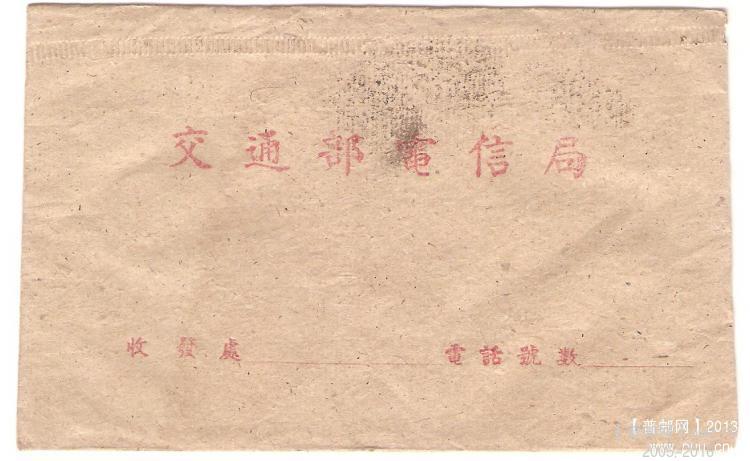 交通部電信局
收發處 電話號數
【普邮网】2013